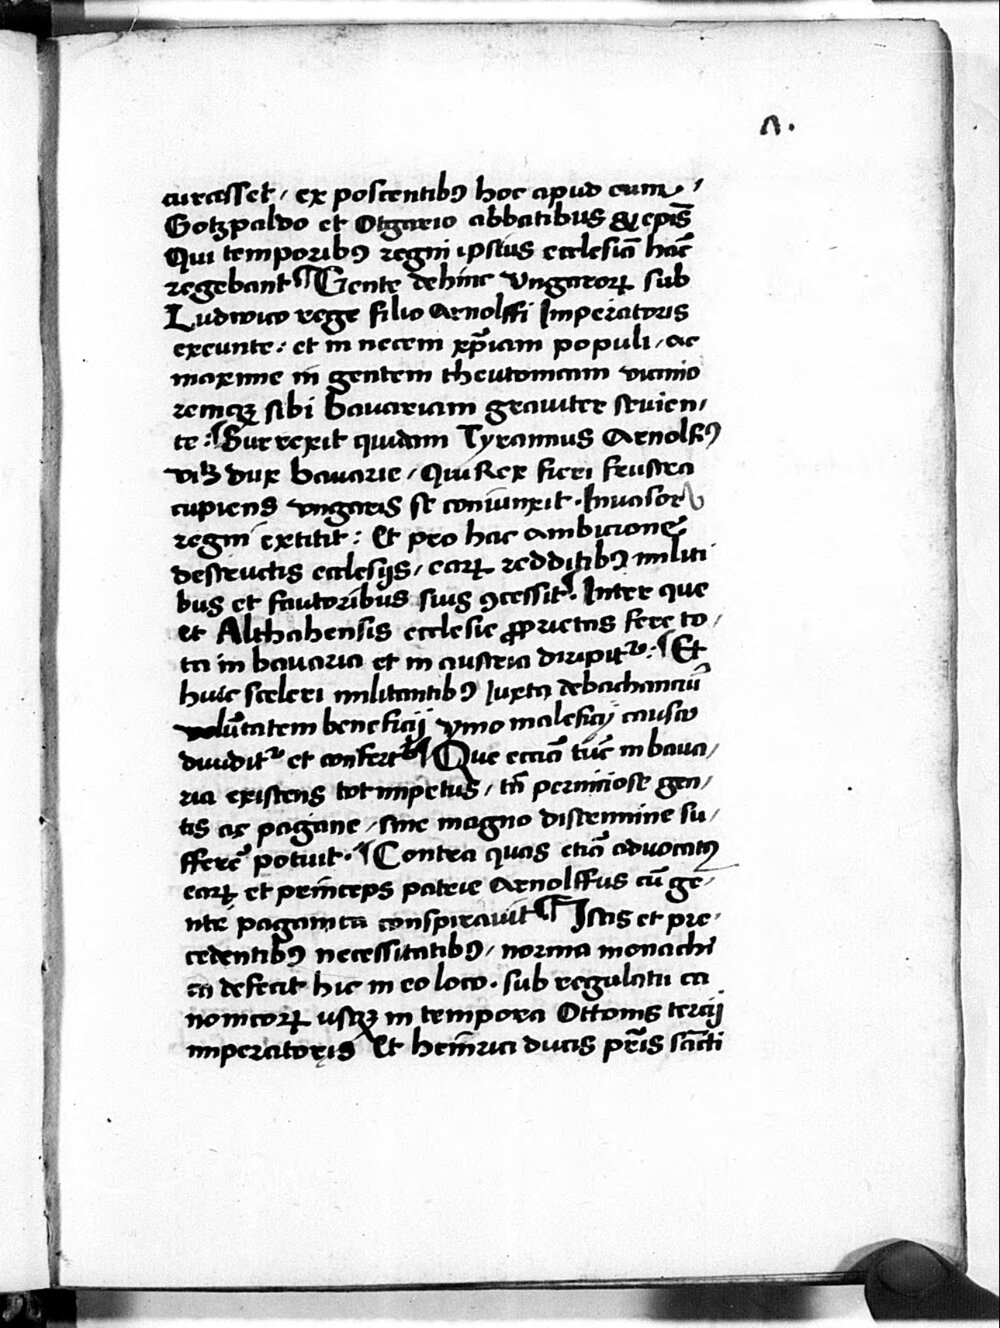 ꝟ.
curasset / ex poscentibꝰ hoc apud eum /
Gotzpaldo et Otgario abbatibus & ep̄is
Qui temporibꝰ regni ipsius ecclesiā hāc
regebant ¶ Gente dehinc vngaroꝝ sub
Ludwico rege filio Arnolffi Imperatoris
exeunte : et in necem xp̄iam populi / ac
maxime in gentem theutonicam vicinio
remqꝫ sibi bauariam grauiter seuien /
te : ¶ Surrexit quidam Tyrannus Arnolfꝰ
dux bauarie / Qui Rex fieri frustra
cupiens vngaris se coniunxit . Inuasor
regni extitit : Et pro hac ambicione
destructis ecclesijs / eaꝝ redditibꝰ militi
bus et fautoribus suis ꝯcessit . Inter que
et Althahensis ecclesie ꝓprietas fere to /
ta in bauaria et in austria diripitᷣ : ¶ Et
huic sceleri militantibꝰ Iuxta debachanciū
volūtatem beneficij ymo maleficij causa
diuiditᷣ et confertᷣ ¶ Que eciā tūc in baua /
ria existens tot impetus / tn̄ perniciose gen /
tis ac pagane / sine magno discrimine su /
fferē potuit . ¶ Contra quas etiā aduocatꝰ
eaꝝ et princeps patrie Arnolffus cū ge /
nte pagana conspirauit ¶ Istis et pre /
cedentibꝰ necessitatibꝰ / norma monachi
ca defecit hic in eo loco . sub regulatu ca
nonicoꝝ usqꝫ in tempora Ottonis tercij
imperatoris Et heinrici ducis pr̄is sācti